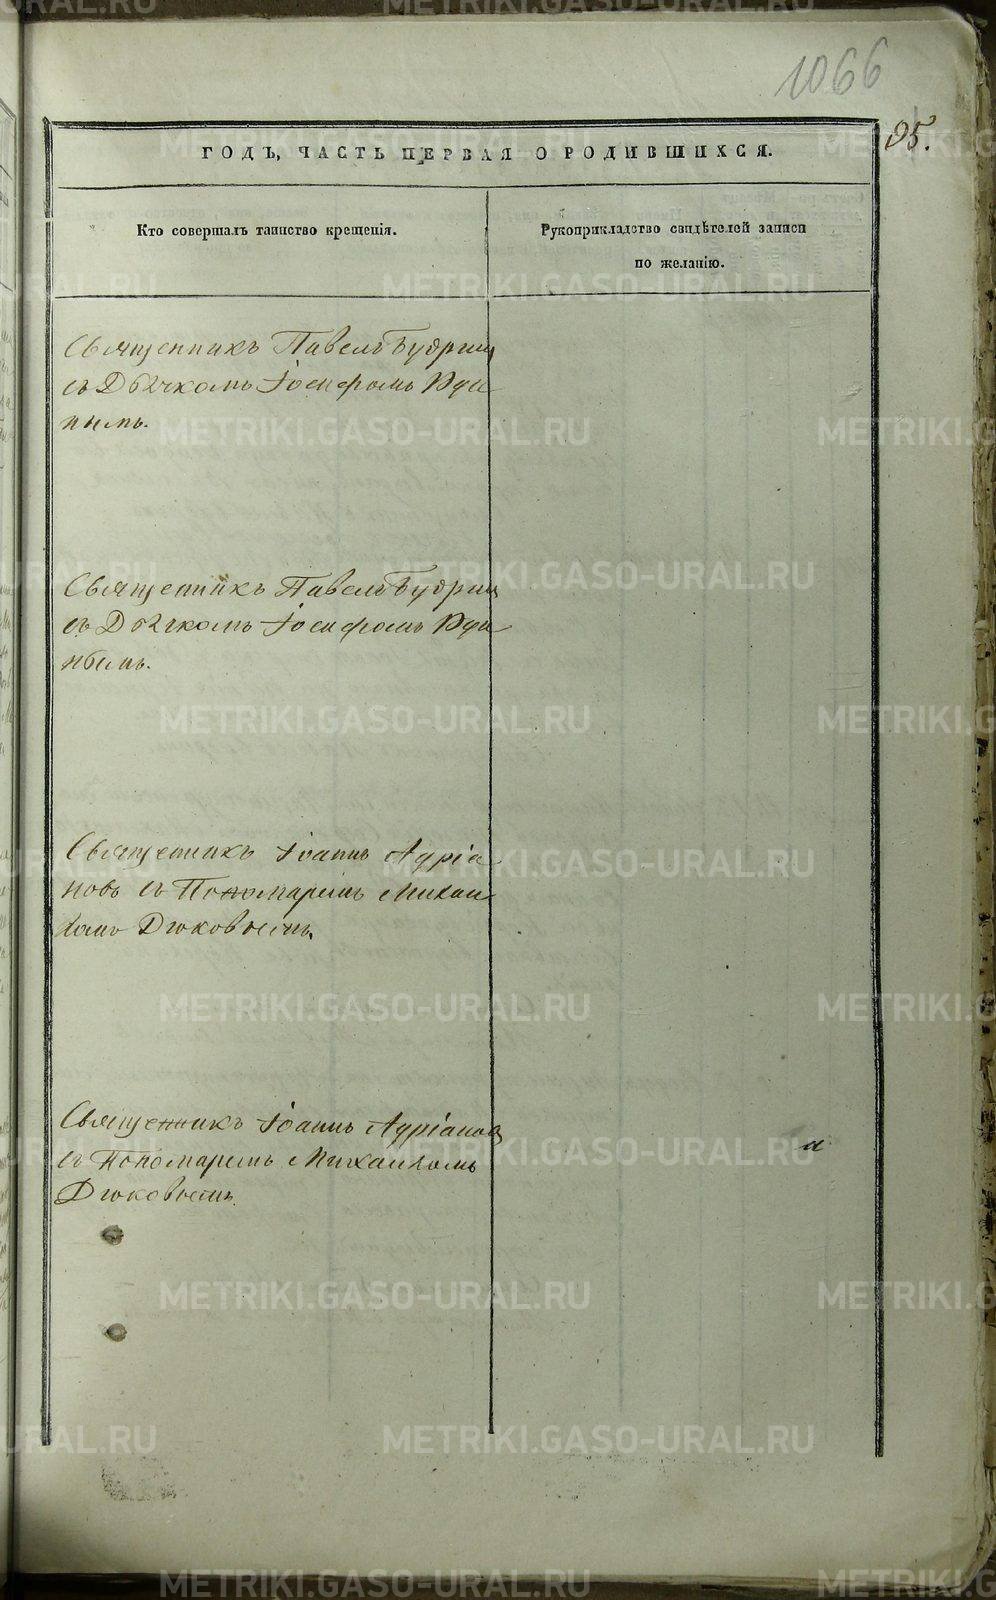 1066
95.
ГОДЪ, ЧАСТЬ ПЕРВАЯ О РОДИВШИХСЯ.
Кто совершалъ таинство крещенія.
Рукоприкладство свидѣтелей записи
по желанію.
Священникъ Павелъ Будрин
съ Дьячкомъ Іосифомъ Юди
нымъ.
Священникъ Павелъ Будрин
съ Дьячкомъ Іосифомъ Юди
нымъ.
Священникъ Іоаннъ Адріа
новъ съ Пономаремъ Михаи
ломъ Дюковымъ.
Священникъ Іоаннъ Адріановъ
съ Пономаремъ Михаиломъ
Дюковымъ.
METRIKI.GASO-URAL.RU